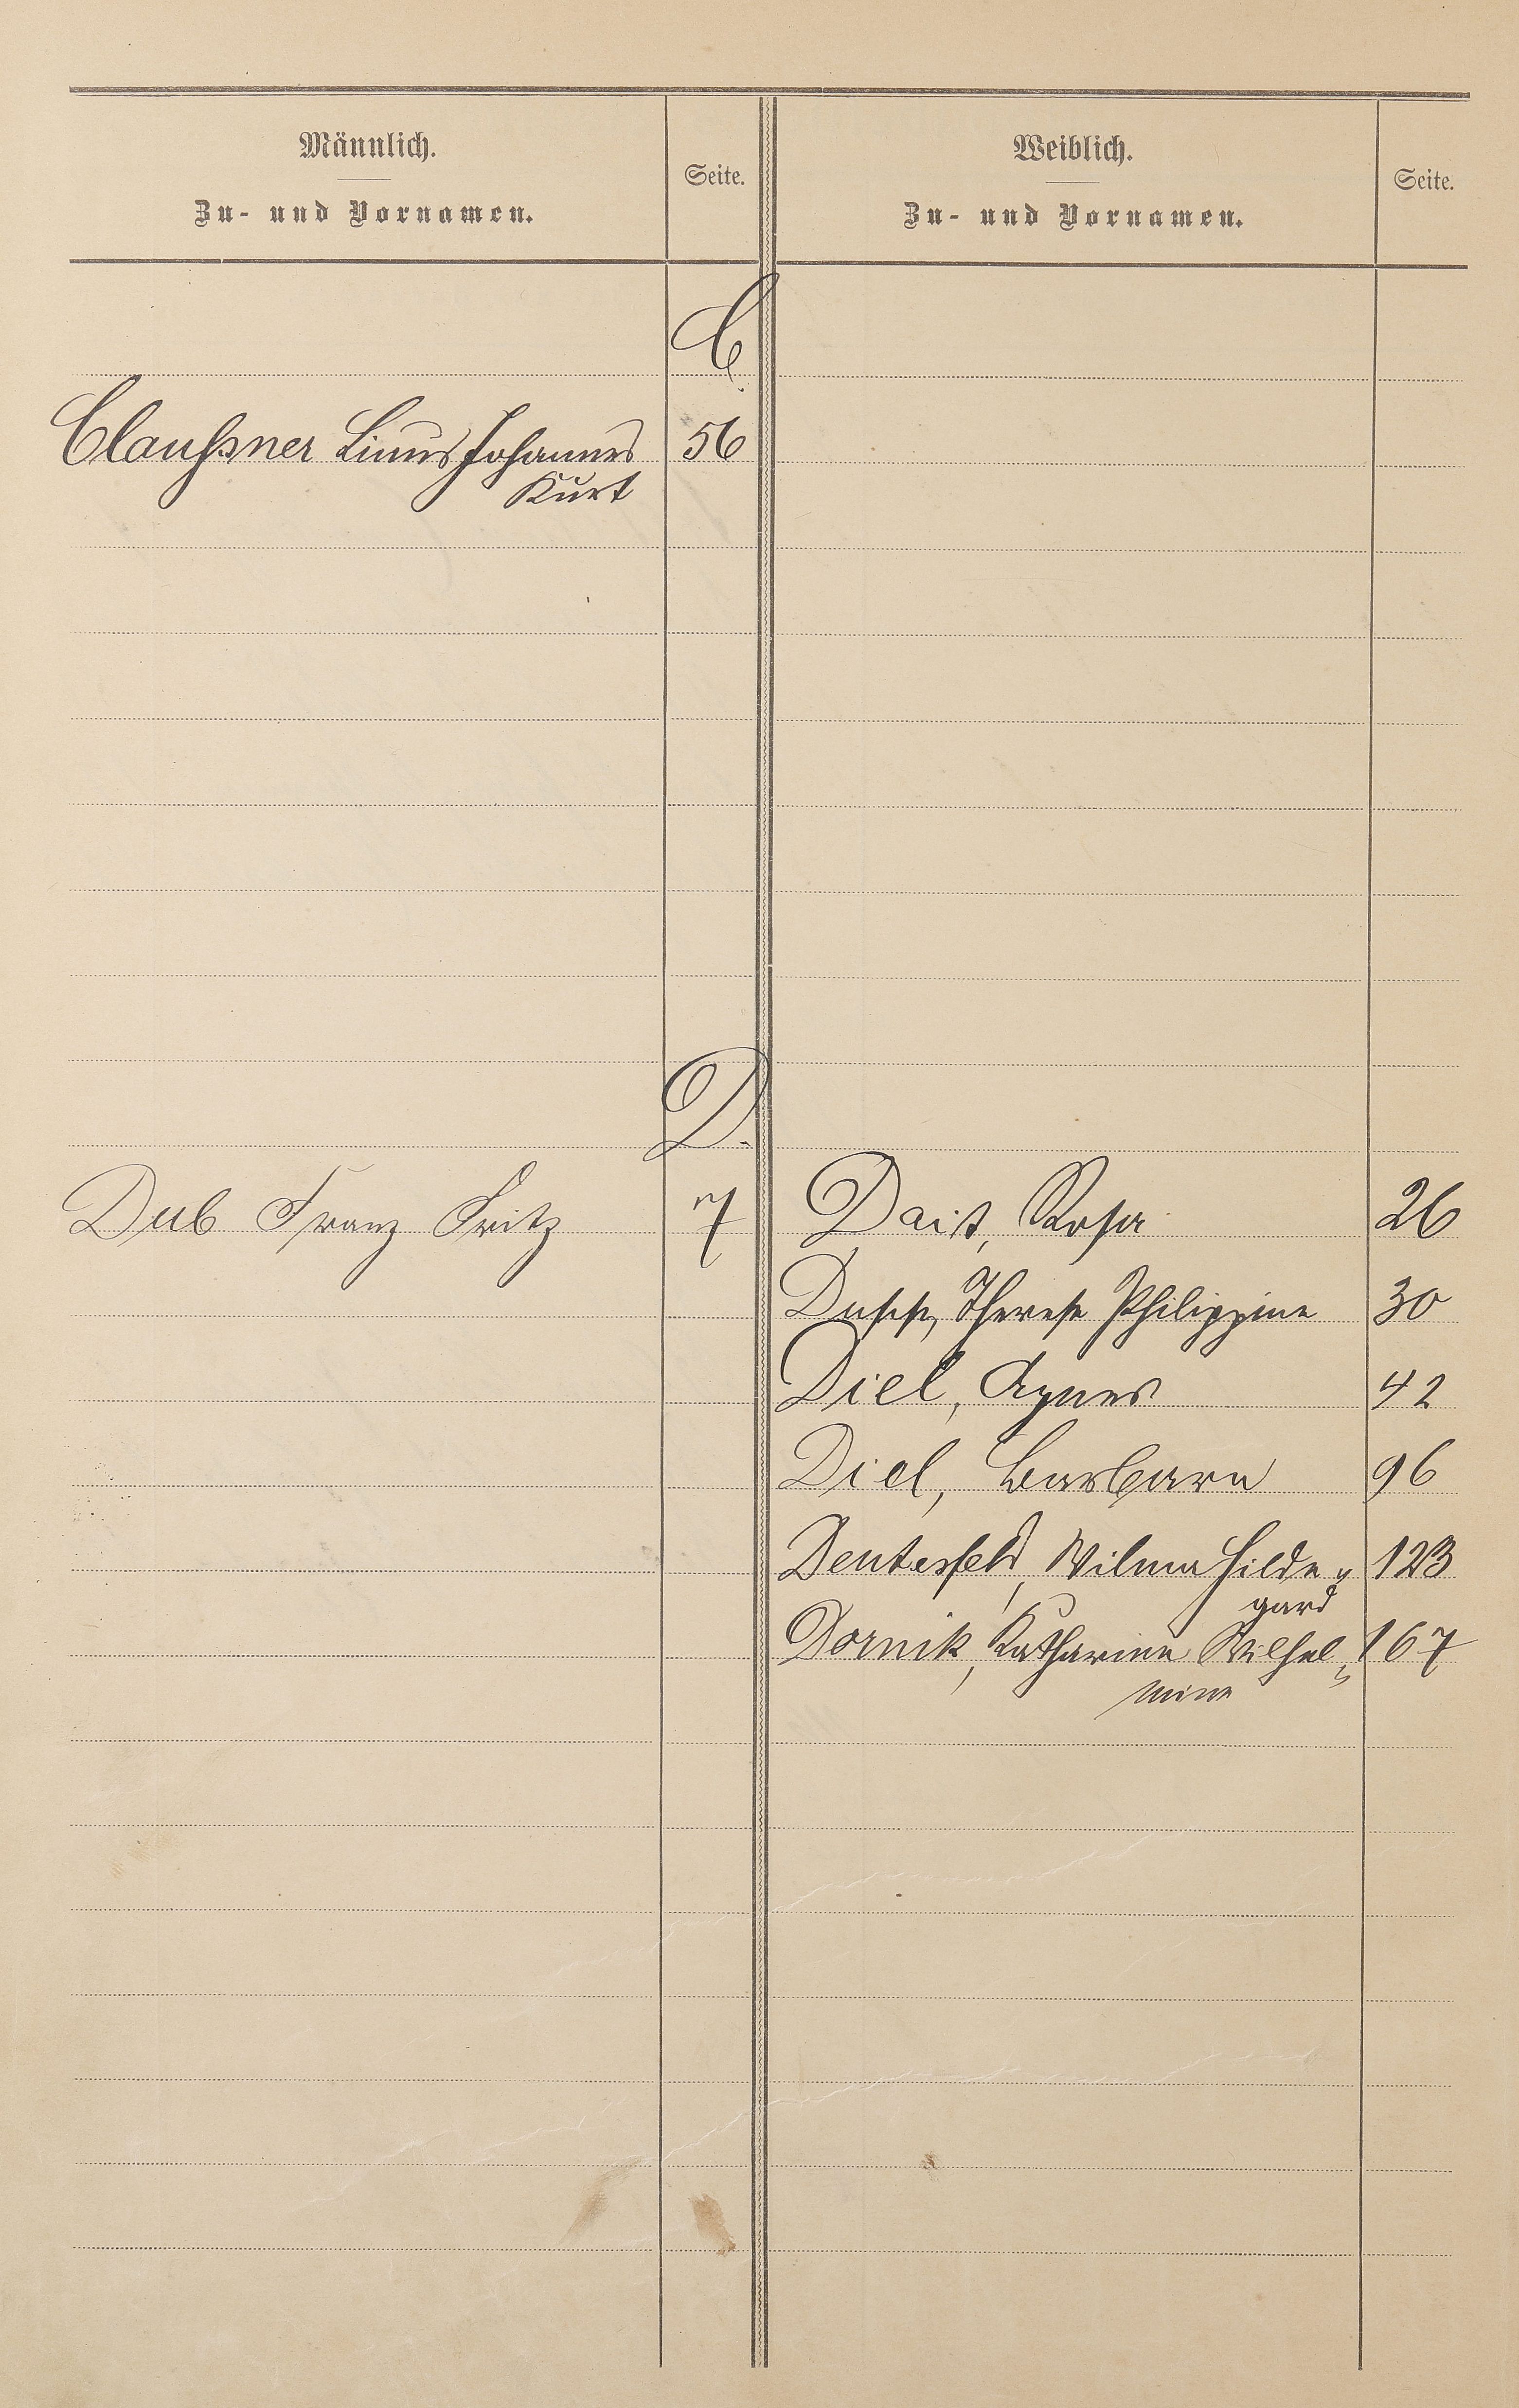 Männlich.
Zu- und Vornamen.
Seite.
Weiblich.
Zu- und Vornamen.
Seite.
C.
Claußner Linus Johannes 56
Kurt
D.
Dub Franz Fritz 7
Daist, Rosa 26
Therese Philippine 30
Diel, Agnes 42
Diel, Barbara 96
Dentesfeld, Wilma Hilde„ 123
gard
Dornik, Katharina Wilhel„ 167
mine